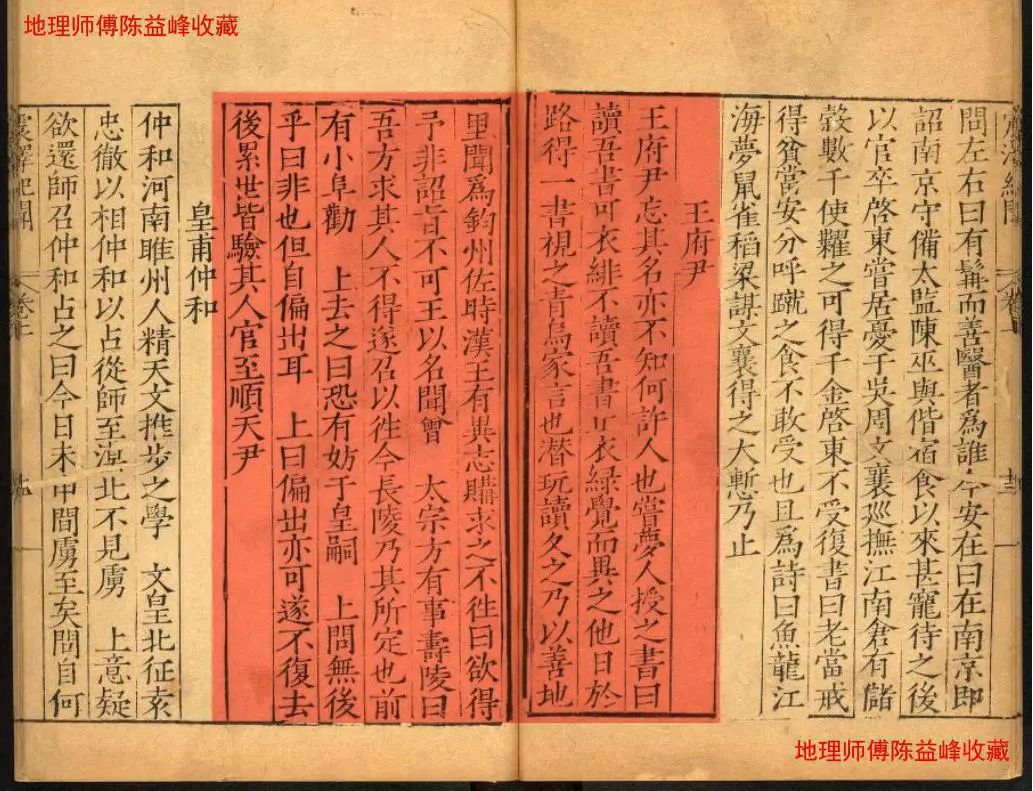 地理师傅陈益峰收藏
問左右曰有髯而善醫者爲誰今安在曰在南京即
詔南京守備太監陳巫與偕宿食以來甚寵待之後
以官卒啓東嘗居憂于吳周文襄巡撫江南倉有儲
穀數千使糶之可得千金啓東不受復書曰老當戒
得貧當安分呼蹴之食不敢受也且爲詩曰魚龍江
海夢鼠雀稻梁謀文襄得之大慙乃止
王府尹
王府尹忘其名亦不知何許人也嘗夢人授之書曰
讀吾書可衣緋不讀吾書止衣綠覺而異之他日於
路得一書視之青烏家言也潜玩讀久之乃以善地
里聞爲鈞州佐時漢王有異志購求之不徃曰欲得
予非詔旨不可王以名聞曾 太宗方有事壽陵曰
吾方求其人不得遂召以徃今長陵乃其所定也前
有小阜勸 上去之曰恐有妨于皇嗣 上問無後
乎曰非也但自偏出耳 上曰偏出亦可遂不復去
後累世皆驗其人官至順天尹
皇甫仲和
仲和河南睢州人精天文推步之學 文皇北征袁
忠徹以相仲和以占從師至漠北不見虜 上意疑
欲還師召仲和占之曰今日未申間虜至矣問自何
震澤紀聞
地理师傅陈益峰收藏